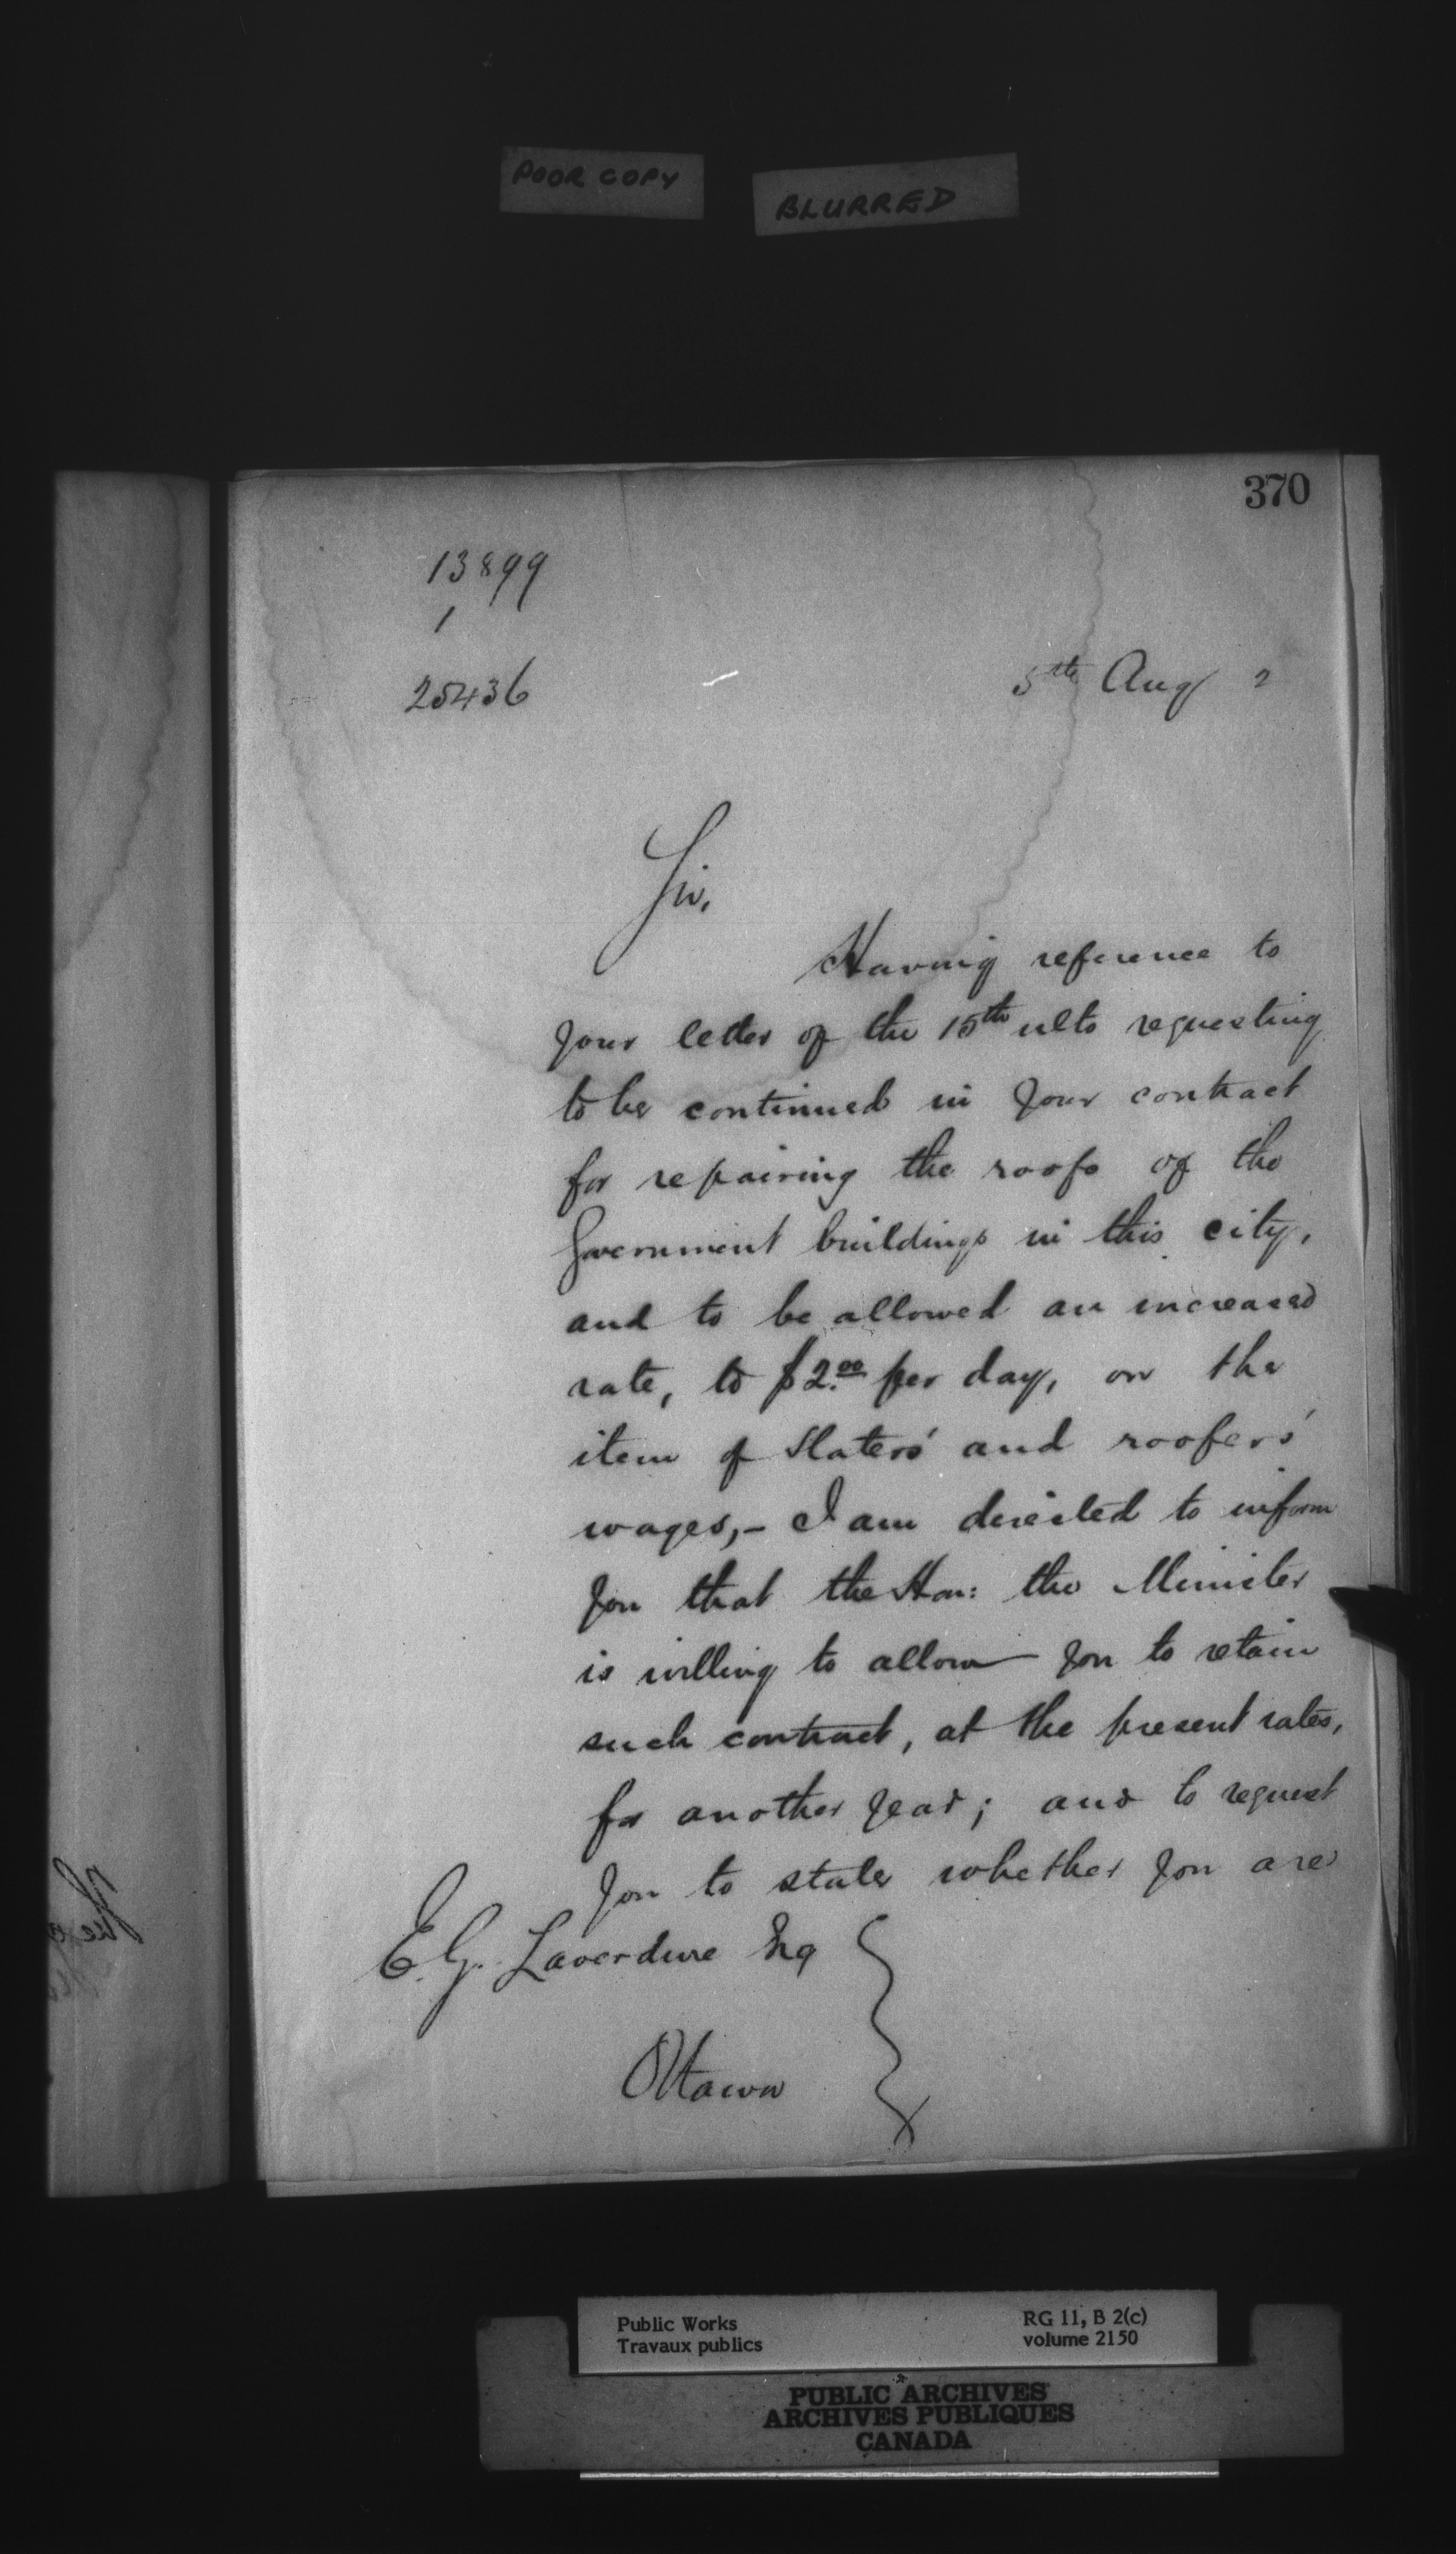 POOR COPY
BLURRED
370
13899
1
25436
5th Aug 2
Sir,
Having reference to
your letter of the 15th ulto requesting
to be continued in your contract
for repairing the roofs of the
Government buildings in this city,
and to be allowed an increased
rate, to $2.00 per day, on the
item of Slaters' and roofers'
wages,- I am directed to inform
you that the Hon: the Minister
is willing to allow you to retain
such contract, at the present rates,
for another year; and to request
you to state whether you are
E. G. Laverdure Esq
Ottawa
Public Works
Travaux publics
RG 11, B 2(c)
volume 2150
PUBLIC ARCHIVES
ARCHIVES PUBLIQUES
CANADA